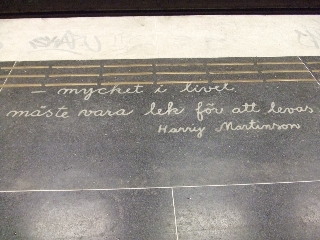 – mycket i livet
måste vara lek för att levas
Harry Martinson